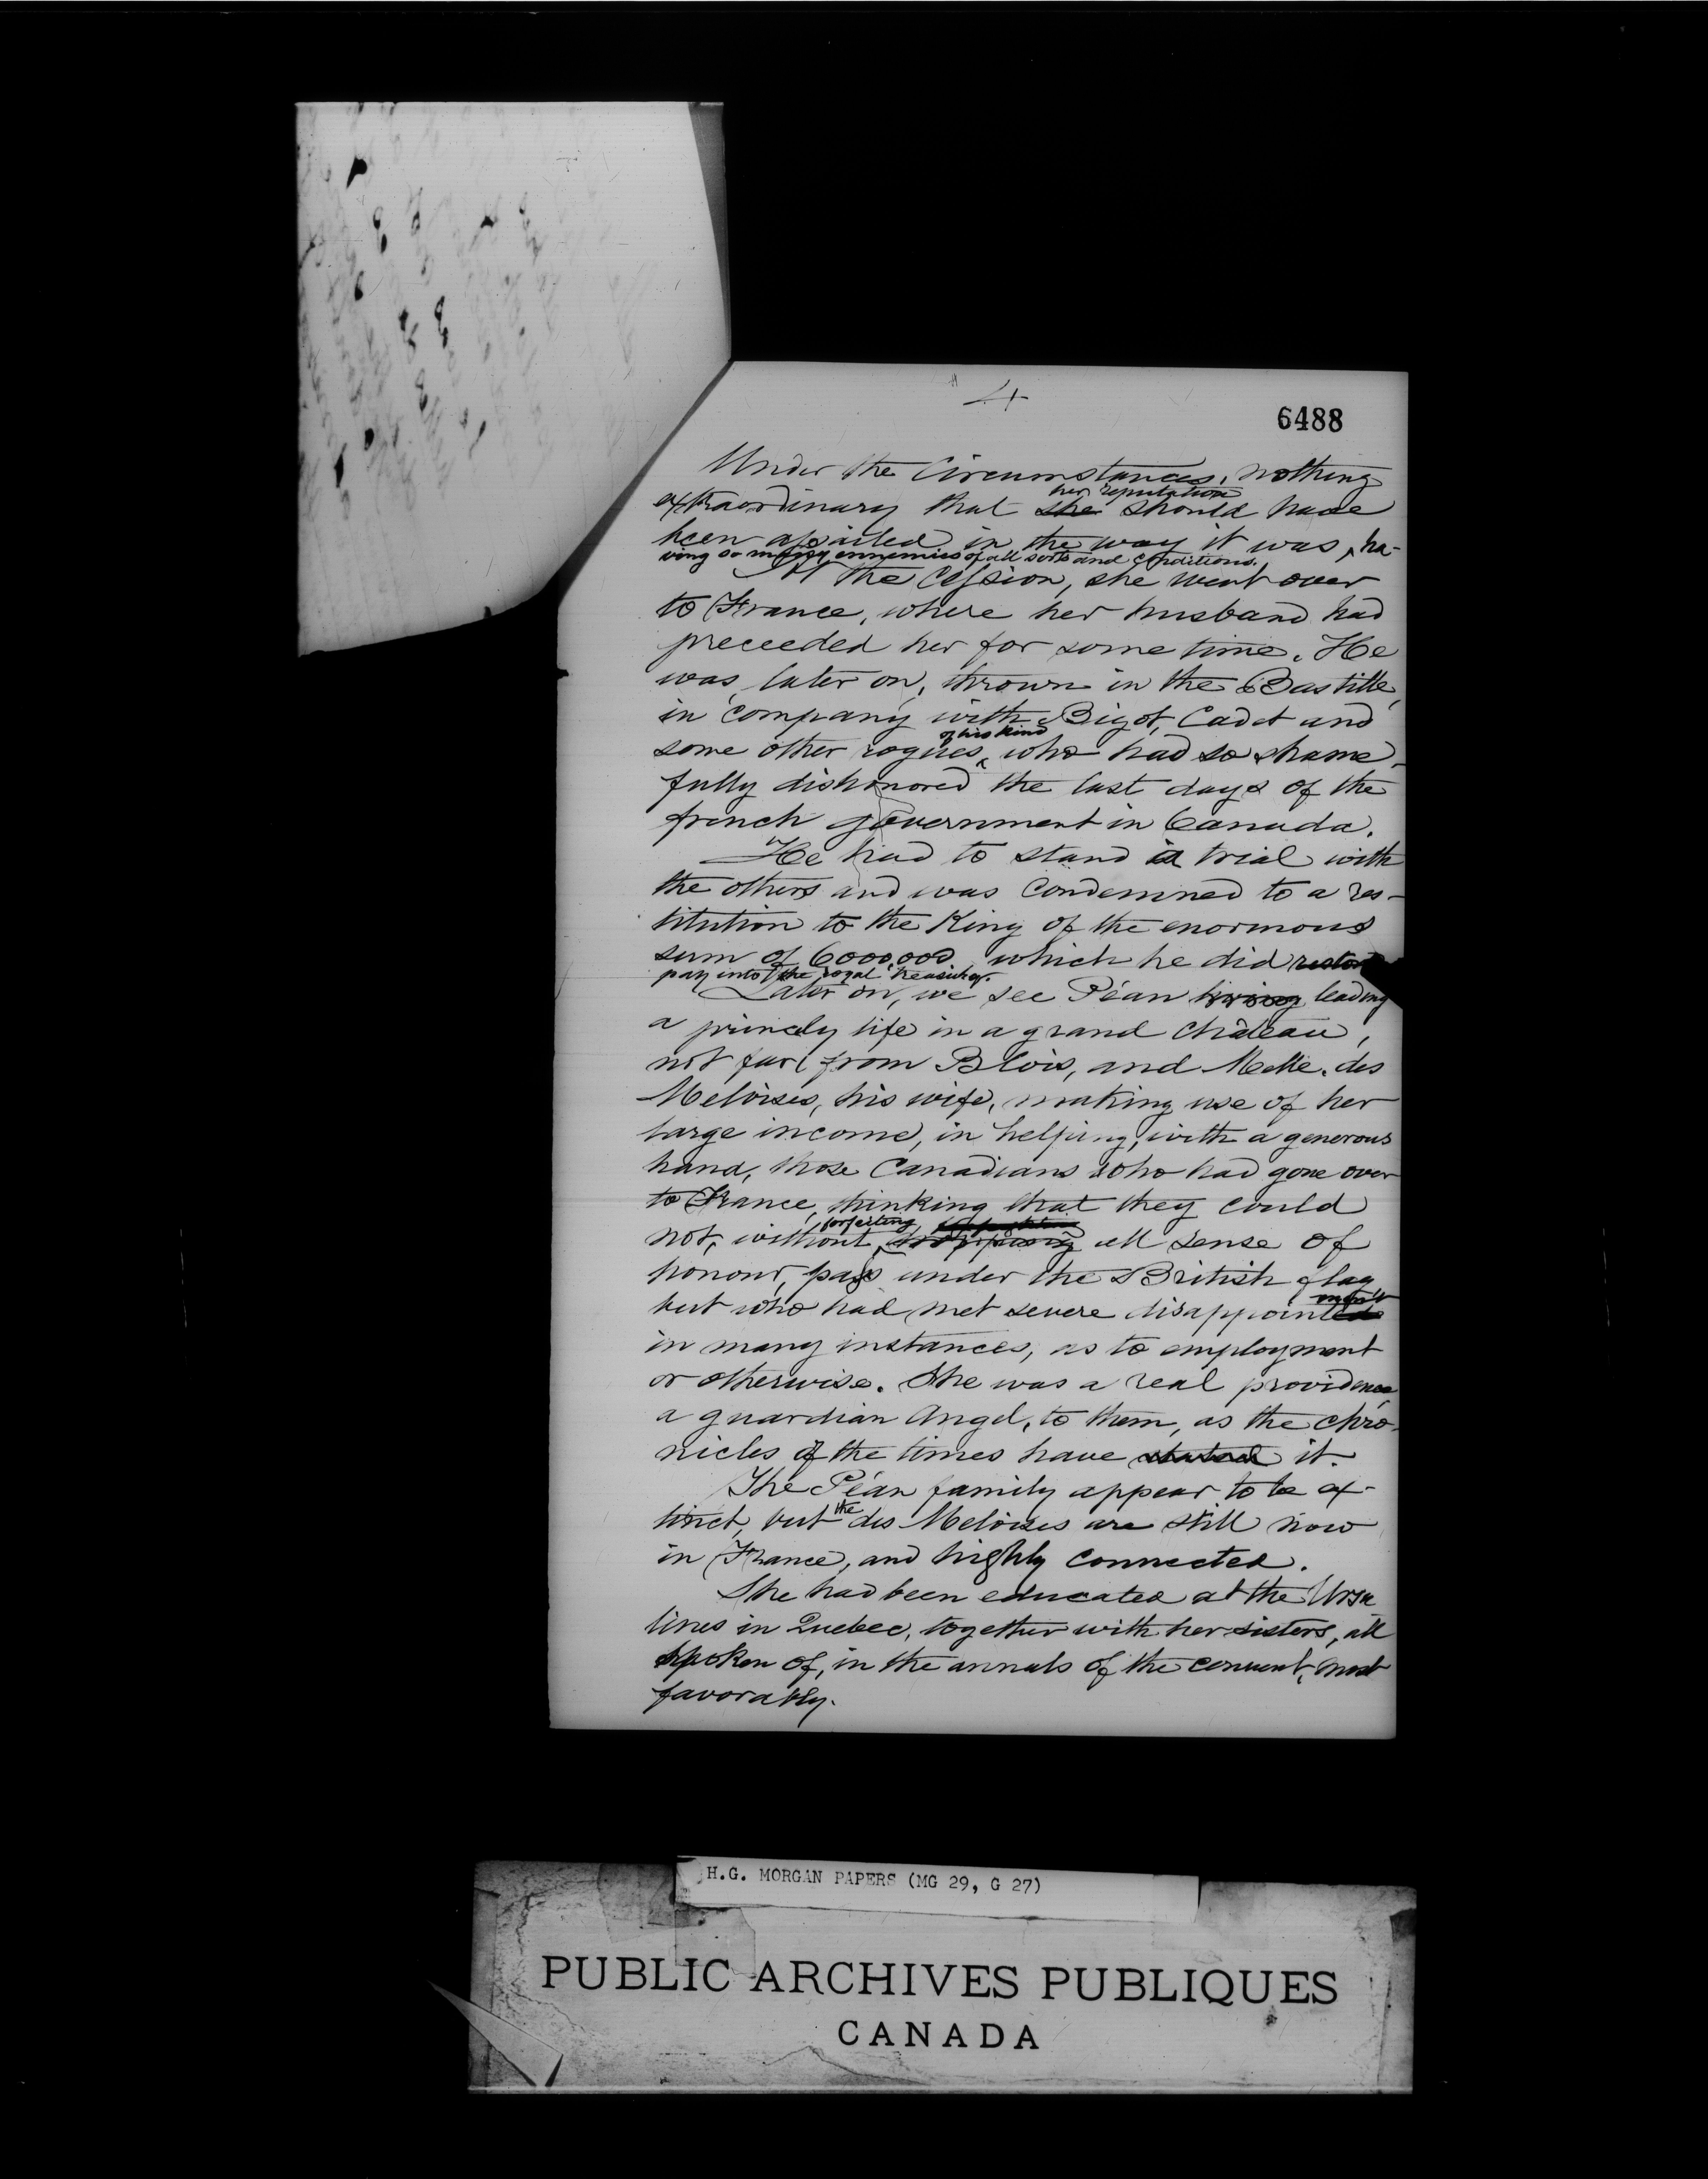 4
6488
Under the Circumstances, nothing
her reputation
extraordinary that she should have
been assailed in the way it was, ha-
ving so many ennemies of all sorts and conditions.
At the Cession, she went over
to France, where her husband had
preceeded her for some time. He
was, later on, thrown in the Bastille,
in company with Bigot, Cadet and
of his kind
some other rogues, who had so shame-
fully dishonored the last days of the
french government in Canada.
He had to stand a trial with
the others and was condemned to a res-
titution to the King of the enormous
sum of 6000,000 which he did restore
pay into the royal treasury.
Later on, we see Péan living leading
a princely life in a grand Château,
not far from Blois, and Melle. des
Meloises, his wife, making use of her
large income, in helping, with a generous
hand, those Canadians who had gone over
to France, thinking that they could
forfeiting
not, without all sense of
honour, pass under the British flag
ment
but who had met severe disappointed
in many instances, as to employment
or otherwise. She was a real providence
a guardian Angel, to them, as the chro-
nicles of the times have stated it.
The Péan family appear to be ex-
the
tinct, but des Meloises are still now
in France, and highly connected.
She had been educated at the Ursu
lines in Quebec, together with her sisters, all
spoken of, in the annals of the convent, most
favorably.
H.G. MORGAN PAPERS (MG 29, G 27)
PUBLIC ARCHIVES PUBLIQUES
CANADA